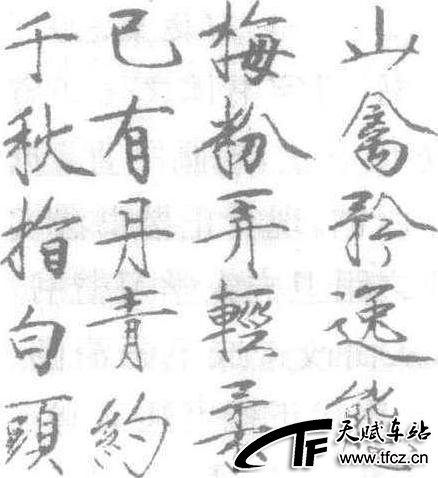 山禽矜逸態
梅粉弄輕柔
已有丹青約
千秋指白頭
TF 天赋车站
www.tfcz.cn